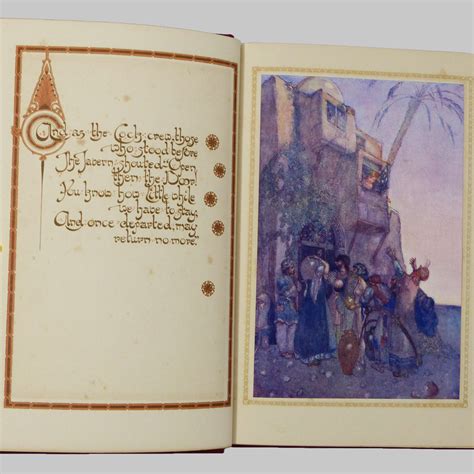 And, as the Cock crew, those
who stood before
The Tavern shouted-"Open
then the Door!
You know how little while
we have to stay,
And once departed, may
return no more."